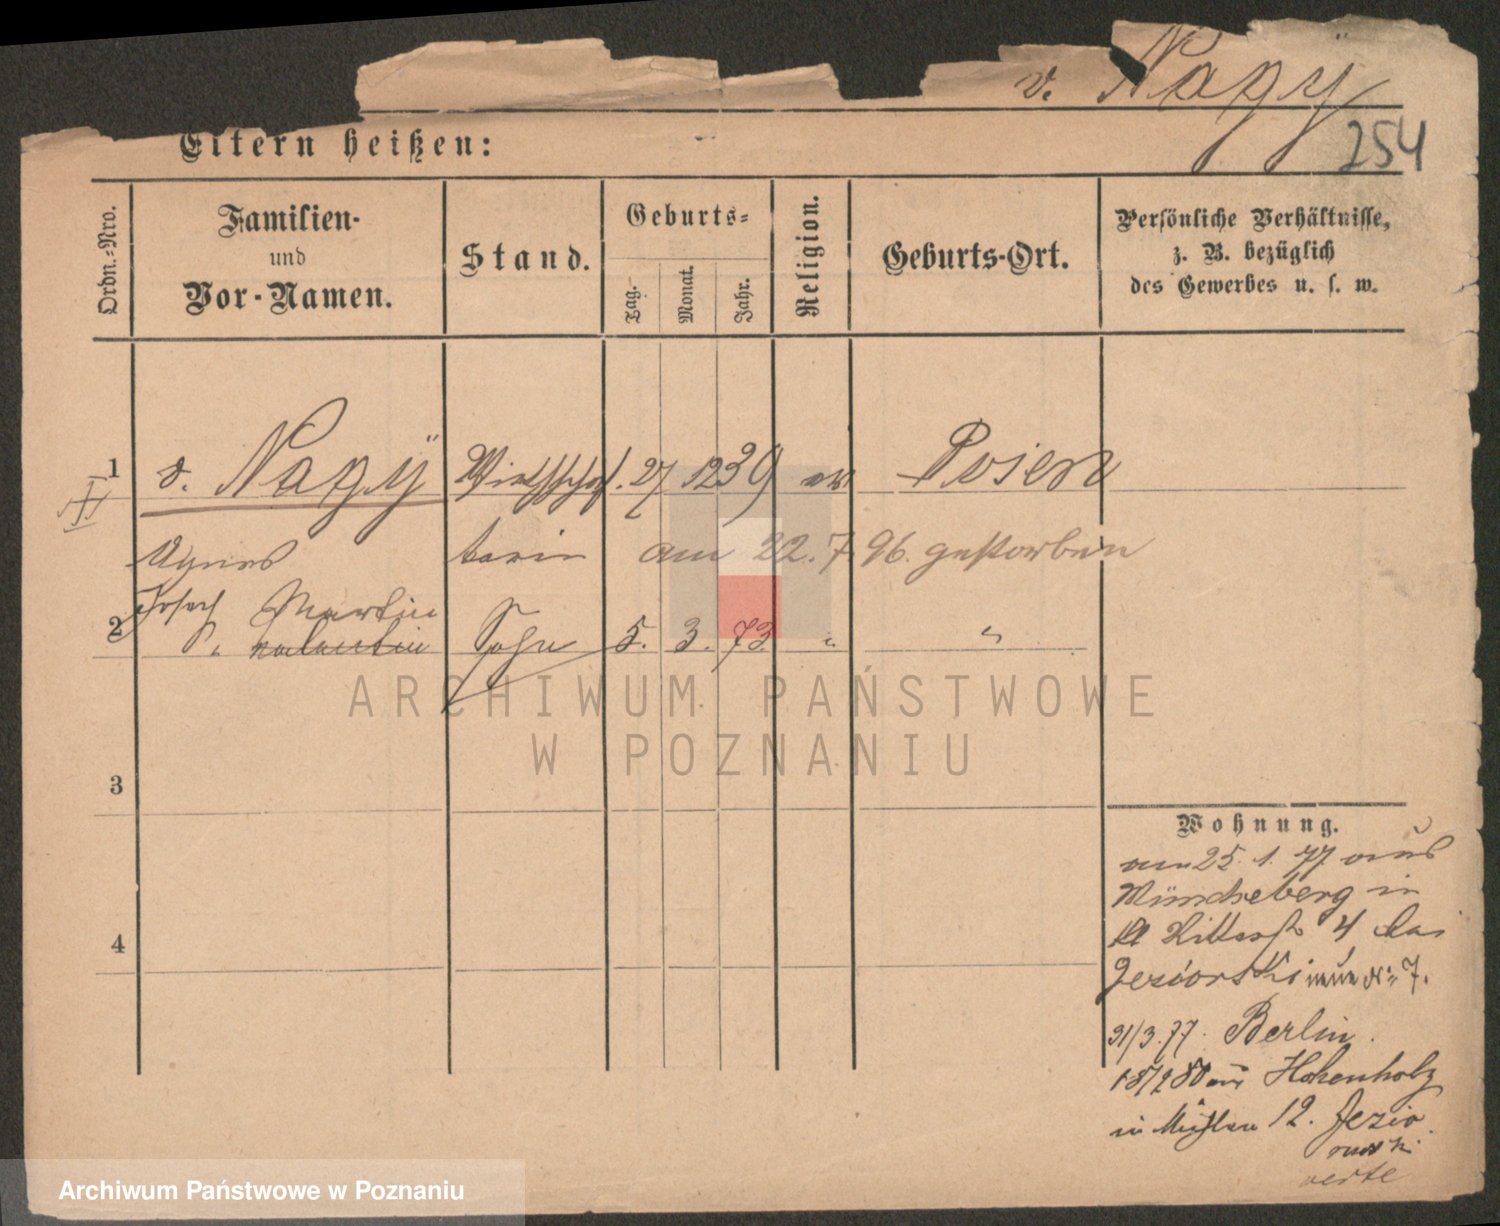 v. Nagÿ
254
Eltern heißen:
Ordn.-Nro.
Familien-
und
Vor-Namen.
Stand.
Geburts-
Tag.
Monat.
Jahr.
Religion.
Geburts-Ort.
Persönliche Verhältnisse,
z. B. bezüglich
des Gewerbes u. s. w.
1 v. Nagÿ Wirthschaf. 27 12 39 ev Posen
Agnes terin am 22. 7 96. gestorben
Josef Martin
2 Valentin Sohn 5. 3. 73 " "
ARCHIWUM PAŃSTWOWE
W POZNANIU
3
4
Wohnung.
am 25. 1. 77 aus
Müncheberg in
Kl Ritterst 4 bei
Jeziorski neue No 7.
31/3.77. Berlin.
18/9 80 aus Hohenholz
in Mühlen 12. Jezio
rowski
verte
Archiwum Państwowe w Poznaniu